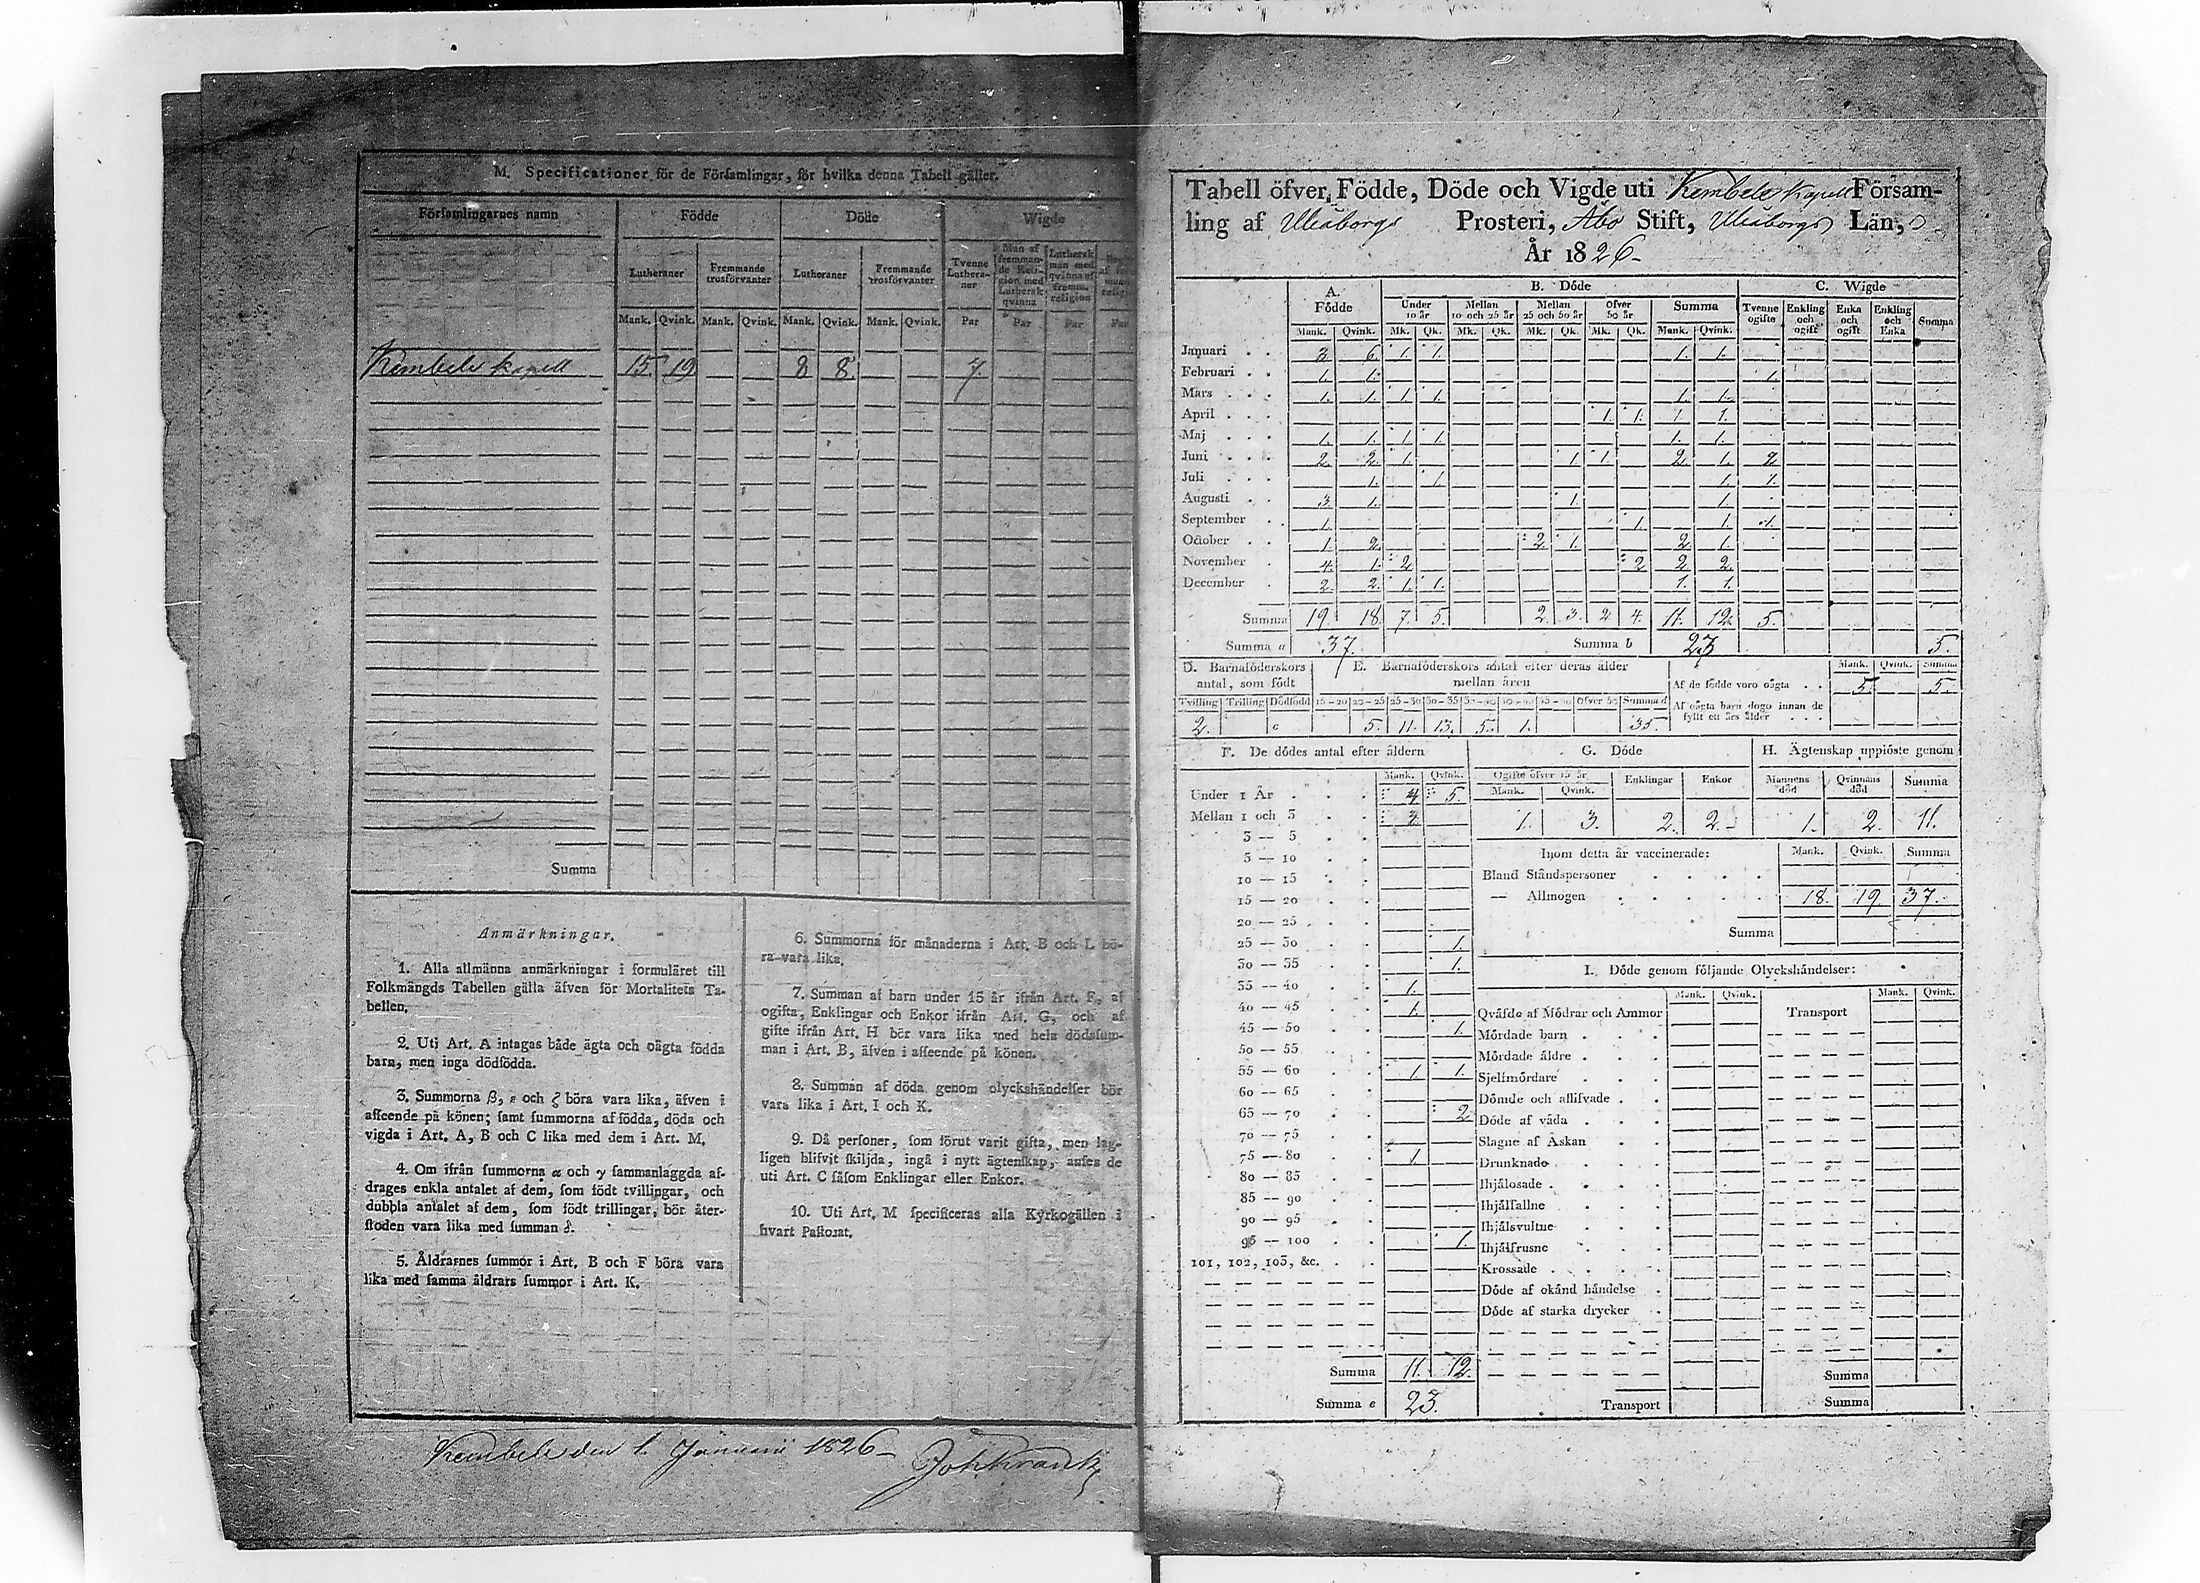 M. Specificationer för de Församlingar, för hvilka denna Tabell gäller.
Församlingarnes namn Födde Döde Wigde
Lutheraner Fremmande trosförvanter Lutheraner Fremmande trosförvanter Tvenne Lutheraner Man af fremmande Religion med Luthersk qvinna Luthersk man med qvinna af fremm. religion
Mank. Qvink. Mank. Qvink. Mank. Qvink. Mank. Qvink. Par Par Par Par
Kembele kapell 15. 19 8 8. 7.
Summa
Anmärkningar.
1. Alla allmänna anmärkningar i formuläret till
Folkmängds Tabellen gälla äfven för Mortalitets Ta-
bellen.
2. Uti Art. A intagas både ägta och oägta födda
barn, men inga dödfödda.
3. Summorna β, ε och ζ böra vara lika, äfven i
afseende på könen; samt summorna af födda, döda och
vigda i Art. A, B och C lika med dem i Art. M.
4. Om ifrån summorna α och γ sammanlaggda af-
drages enkla antalet af dem, som födt tvillingar, och
dubbla antalet af dem, som födt trillingar, bör åter-
stoden vara lika med summan δ.
5. Åldrarnes summor i Art. B och F böra vara
lika med samma åldrars summor i Art. K.
6. Summorna för månaderna i Art. B och L bö-
ra vara lika.
7. Summan af barn under 15 år ifrån Art. F, af
ogifta, Enklingar och Enkor ifrån Art. G, och af
gifte ifrån Art. H bör vara lika med hela dödssum-
man i Art. B, äfven i afseende på könen.
8. Summan af döda genom olyckshändelser bör
vara lika i Art. I och K.
9. Då personer, som förut varit gifta, men lag-
ligen blifvit skiljda, ingå i nytt ägtenskap, anses de
uti Art. C såsom Enklingar eller Enkor.
10. Uti Art. M specificeras alla Kyrkogällen i
hvart Pastorat.
Kembele den 1. Januarii 1826
Joh Krank
Tabell öfver Födde, Döde och Vigde uti Kembele kapell Försam-
ling af Uleåborgs Prosteri, Åbo Stift, Uleåborgs Län,
År 1826
A. Födde B. Döde C. Wigde
Under 10 år Mellan 10 och 25 år Mellan 25 och 50 år Öfver 50 år Summa Tvenne ogifte Enkling och ogift Enka och ogift Enkling och Enka Summa
Mank. Qvink. Mk. Qk. Mk. Qk. Mk. Qk. Mk. Qk. Mank. Qvink.
Januari 3 6. 1. 1. 1. 1.
Februari 1. 1. 1.
Mars 1. 1. 1. 1. 1. 1.
April 1. 1. 1. 1.
Maj 1. 1. 1. 1. 1. 1.
Juni 2. 2. 1. 1. 1. 2. 1. 2.
Juli 1. 1. 1. 1.
Augusti 3. 1. 1. 1.
September 1. 1. 1. 1.
October 1. 2. 2. 1. 2. 1.
November 4. 1. 2 2 2 2.
December 2. 2. 1. 1. 1. 1.
Summa 19. 18. 7. 5. 2. 3. 2 4. 11. 12. 5.
Summa a 37. Summa b 23 5.
D. Barnaföderskors antal, som födt
E. Barnaföderskors antal efter deras ålder mellan åren
Mank. Qvink. Summa
Af de födde voro oägta 5. 5.
Af oägta barn dogo innan de fyllt ett års ålder
Tvilling Trilling Dödfödd 15-20 20-25 25-30 30-35 35-40 40-45 45-50 Öfver 50 Summa d
2. c 5. 11. 13. 5. 1. 35.
F. De dödes antal efter åldern
Mank. Qvink.
Under 1 År 4 5.
Mellan 1 och 3
3 — 5
5 — 10
10 — 15
15 — 20
20 — 25
25 — 30 1.
30 — 35 1.
35 — 40 1.
40 — 45 1.
45 — 50 1.
50 — 55
55 — 60 1. 1.
60 — 65
65 — 70 2
70 — 75
75 — 80 1.
80 — 85
85 — 90
90 — 95
95 — 100 1.
101, 102, 103, &c.
Summa 11. 12.
Summa e 23.
G. Döde
Ogifte öfver 15 år Enklingar Enkor
Mank. Qvink.
1. 3. 2. 2.
H. Ägtenskap upplöste genom
Mannens död Qvinnans död Summa
1. 2. 11.
Inom detta år vaccinerade: Mank. Qvink. Summa
Bland Ståndspersoner
— Allmogen 18. 19. 37.
Summa
I. Döde genom följande Olyckshändelser:
Mank. Qvink. Mank. Qvink.
Qväfde af Mödrar och Ammor Transport
Mördade barn
Mördade äldre
Sjelfmördare
Dömde och aflifvade
Döde af våda
Slagne af Åskan
Drunknade
Ihjälosade
Ihjälfallne
Ihjälsvultne
Ihjälfrusne
Krossade
Döde af okänd händelse
Döde af starka drycker
Summa
Transport Summa